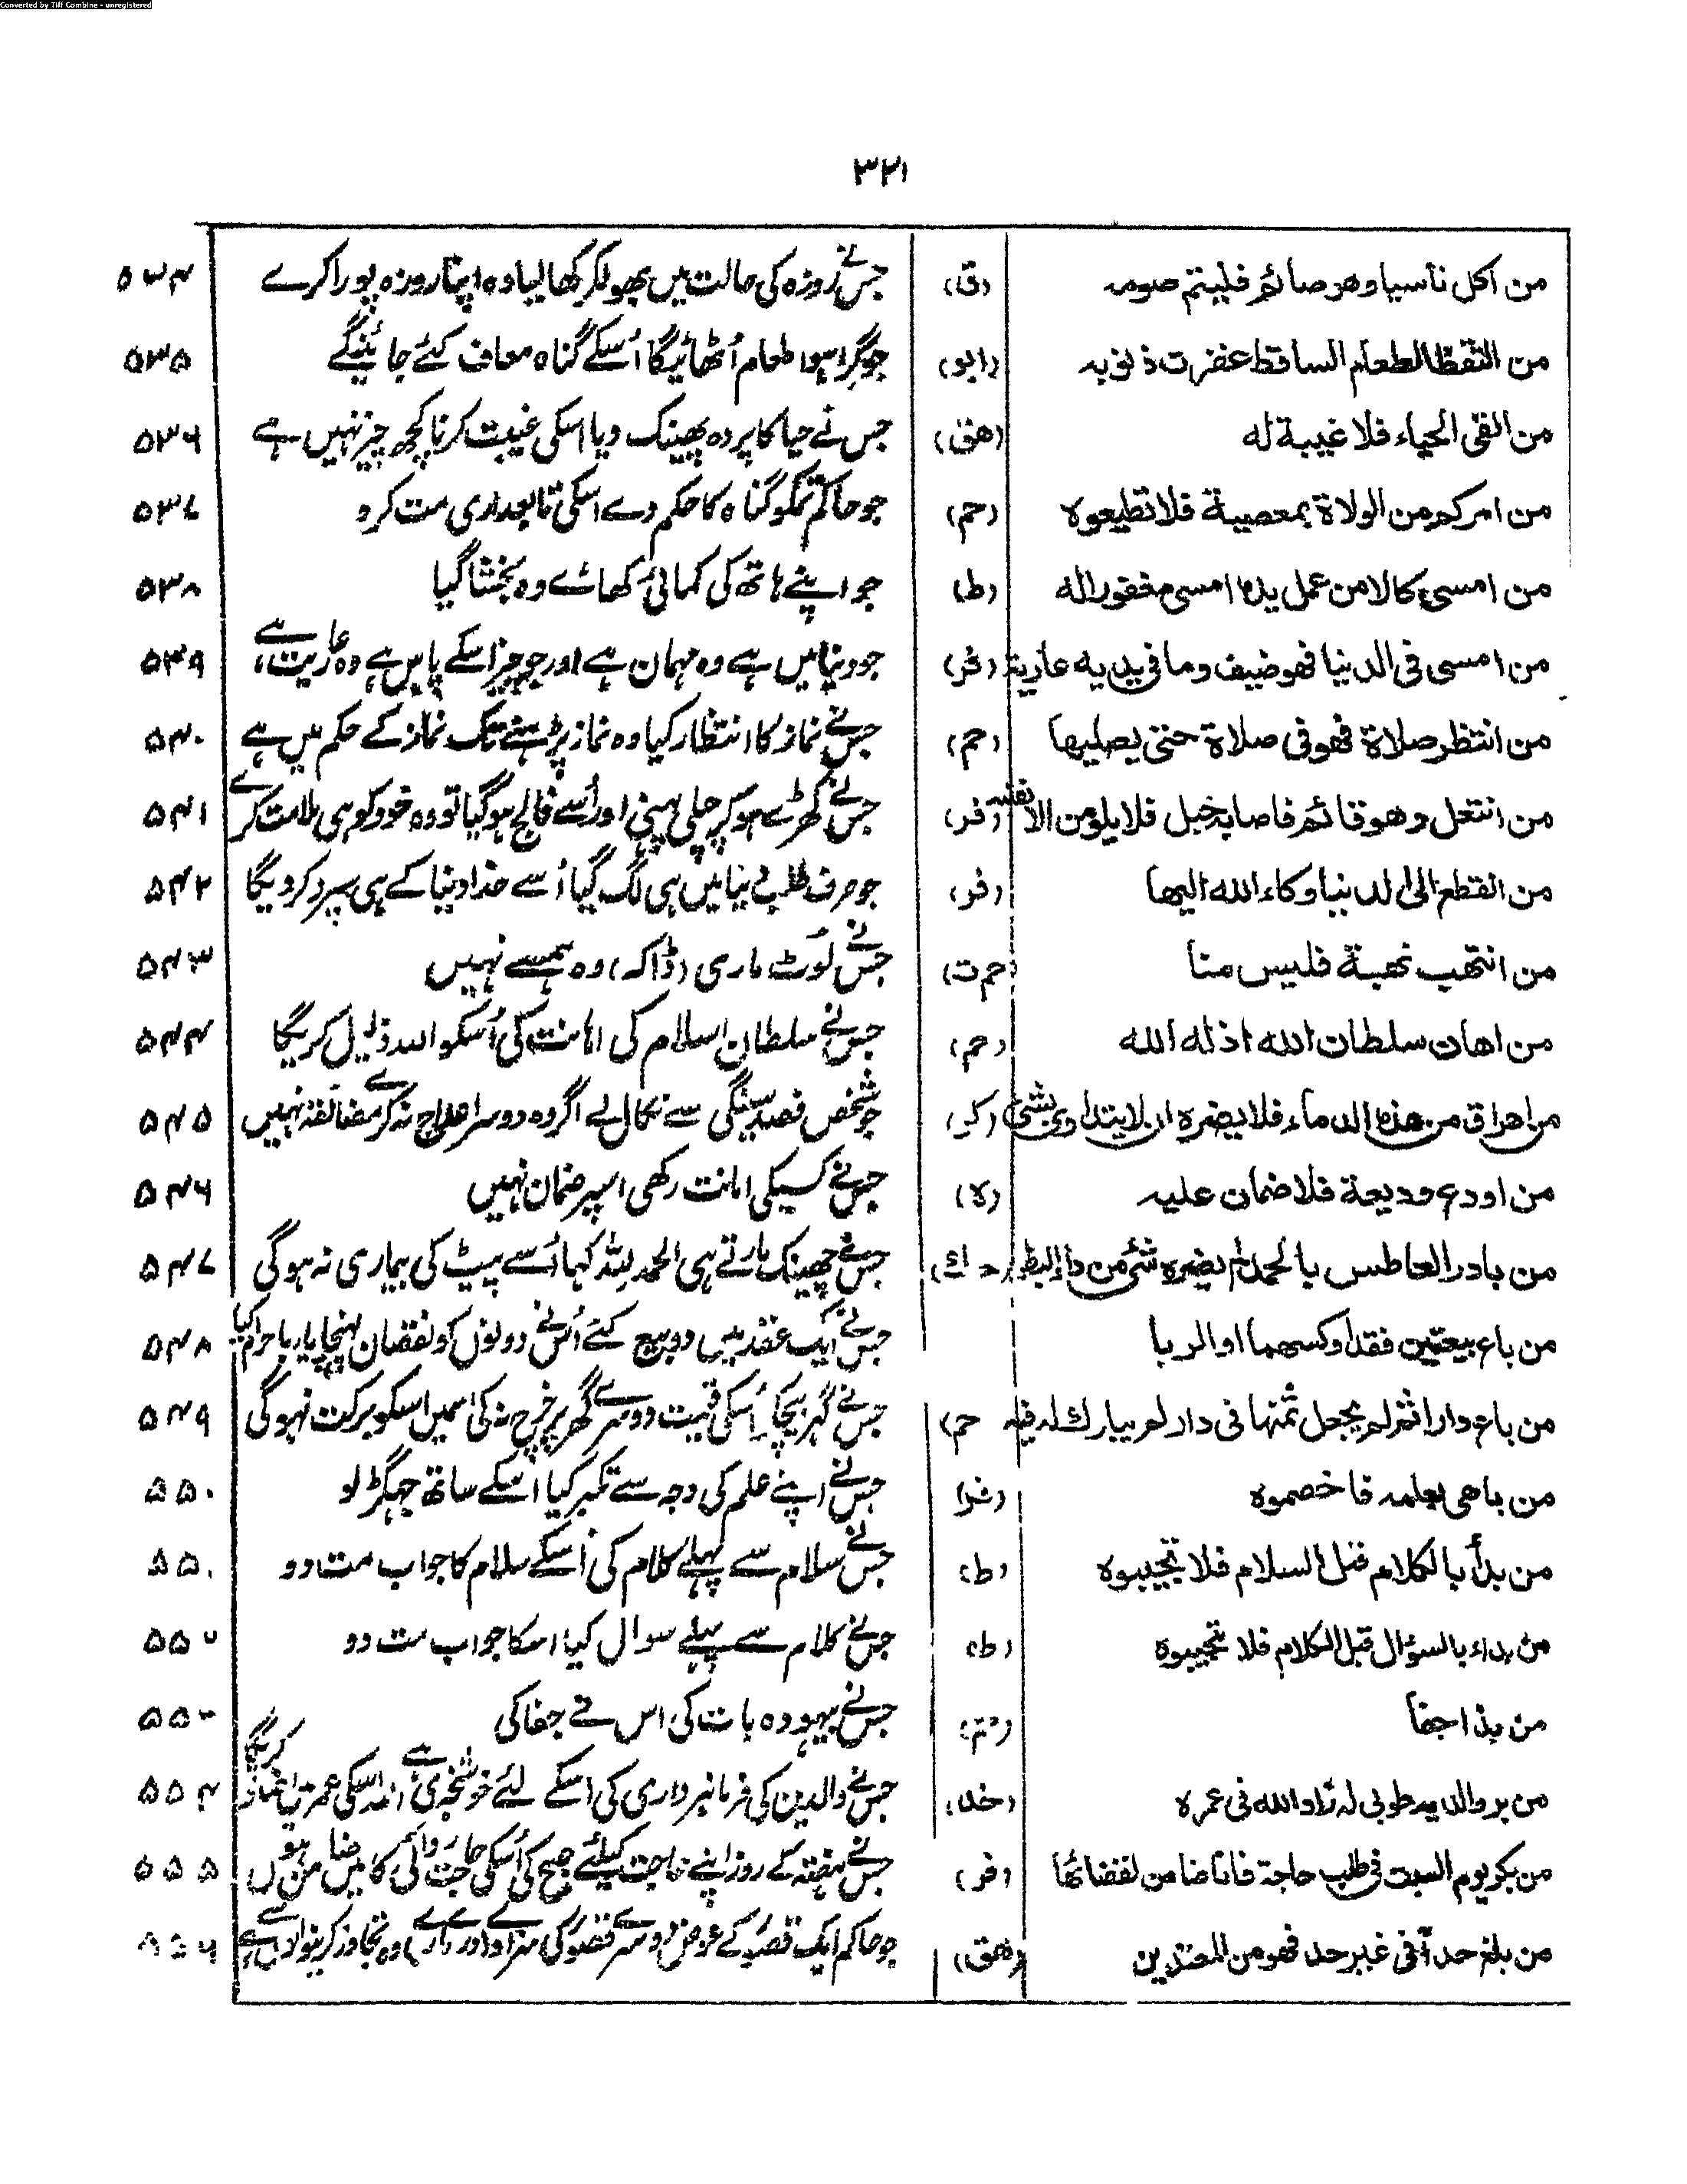 Converted by Tiff Combine - unregistered
۳۲۱
من اكل ناسيا وهو صائم فليتم صومه (ق) جس نے روزہ کی حالت میں بھولکر کھا لیا وہ اپنا روزہ پورا کرے ۵۳۴
من التقط الطعام الساقط غفرت ذنوبه (ابو) جو گرا ہوا طعام اُٹھائیگا اُسکے گناہ معاف کئے جائینگے ۵۳۵
من القى الحياء فلا غيبة له (هق) جس نے حیا کا پردہ پھینک دیا اسکی غیبت کرنا کچھ چیز نہیں ہے ۵۳۶
من امركم من الولاة بمعصية فلا تطيعوه (حم) جو حاکم تمکو گناہ کا حکم دے اسکی تابعداری مت کرو ۵۳۷
من امسى كالا من عمل يده امسى مغفورا له (ط) جو اپنے ہاتھ کی کمائی کھائے وہ بخشا گیا ۵۳۸
من امسى فى الدنيا فهو ضيف وما فى يديه عارية (فر) جو دنیا میں ہے وہ مہمان ہے اور جو چیز اسکے پاس ہے وہ عاریت ہے ۵۳۹
من انتظر صلاة فهو فى صلاة حتى يصليها (حم) جس نے نماز کا انتظار کیا وہ نماز پڑہنے تک نماز کے حکم میں ہے ۵۴۰
من انتعل وهو قائم فاصابه خبل فلا يلومن الا نفسه (فر) جس نے کھڑے ہو کر چپلی پہنی اور اُسے فالج ہو گیا تو وہ خود کو ہی ملامت کرے ۵۴۱
من انقطع الى الدنيا وكاء الله اليها (فر) جو صرف طلب دنیا میں ہی لگ گیا اُسے خدا دنیا کے ہی سپرد کر دیگا ۵۴۲
من انتهب نهبة فليس منا (حم ت) جس نے لُوٹ ماری (ڈاکہ) وہ ہمسے نہیں ۵۴۳
من اهان سلطان الله اذله الله (حم) جس نے سلطان اسلام کی اہانت کی اُسکو اللہ ذلیل کریگا ۵۴۴
من اهراق من هذه الدماء فلا يضره ان لا يتداوى بشئ جو شخص فصد سینگی سے نکال لے اگر وہ دوسرا علاج نہ کرے مضائقہ نہیں ۵۴۵
من اودع وديعة فلا ضمان عليه (ه) جس نے کسیکی امانت رکھی اسپر ضمان نہیں ۵۴۶
من بادر العاطس بالحمد لم يضره شئ من داء البطن جس نے چھینک مارتے ہی الحمد للہ کہا اُسے پیٹ کی بیماری نہ ہوگی ۵۴۷
من باع بيعتين فقد اوكسهما او الربا جس نے ایک عقد میں دو بیع کئے اُس نے دونوں کو نقصان پہنچایا یا ۵۴۸
من باع دارا ثم لم يجعل ثمنها فى دار لم يبارك له فيه حم) جس نے گہر بیچا اُسکی قیمت دوسرے گھر پر خرچ نہ کی اسمیں اسکو برکت نہوگی ۵۴۹
من باهى بعلمه فاخصموه جس نے اپنے علم کی وجہ سے تکبر کیا اسکے ساتھ جہگڑ لو ۵۵۰
من بدأ بالكلام قبل السلام فلا تجيبوه (ط) جس نے سلام سے پہلے کلام کی اُسکے سلام کا جواب مت دو ۵۵۰
من بداء بالسؤال قبل الكلام فلا تجيبوه (ط) جس نے کلام سے پہلے سوال کیا اسکا جواب مت دو ۵۵
من بذا جفا جس نے بیہودہ بات کی اس نے جفا کی ۵۵
من بر والديه طوبى له زاد الله فى عمره (خد) جس نے والدین کی فرمانبرداری کی اسکے لئے خوشخبری ہے اللہ اسکی عمر میں کریگا ۵۵۴
من بكر يوم السبت فى طلب حاجة فانا ضامن لقضائها (فر) جس نے ہفتہ کے روز اپنے حاجت کیلئے صبح کی اُسکی حاجت روائی کا میں ضامن ہوں ۵۵۵
من بلغ حدا فى غير حد فهو من المعتدين (هق) جو حاکم ایک قصور کے عوض دوسرے قصور کی سزا وہ تجاوز کرنیوالا ہے ۵۵۶